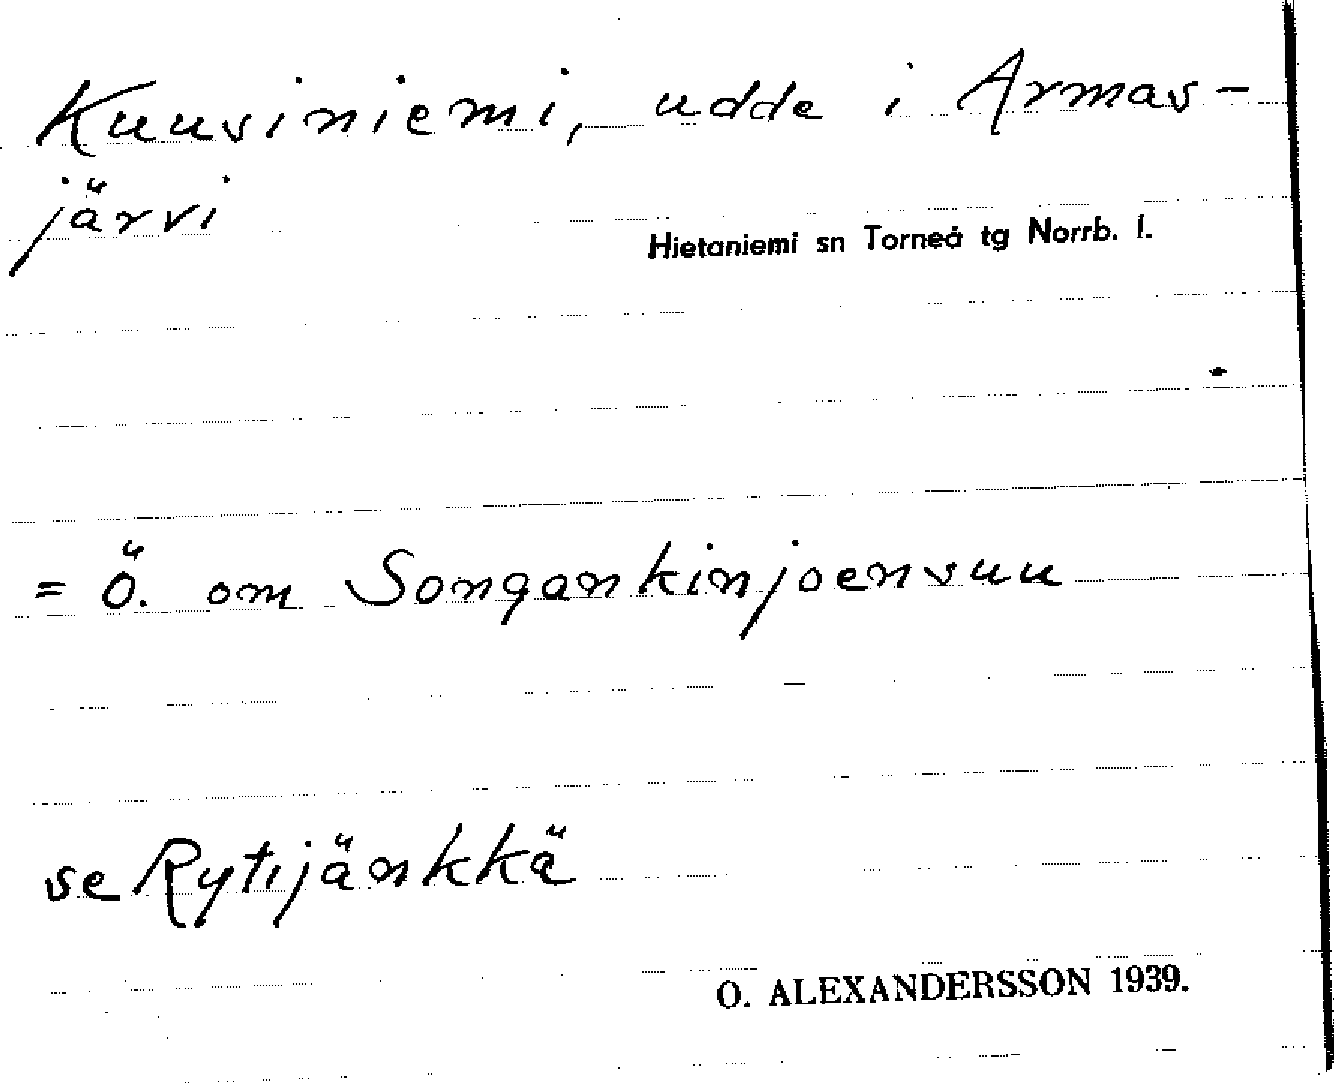 Kuusiniemi, udde i Armas-
järvi
Hietaniemi sn Torneå tg Norrb. l.
= Ö. om Songankinjoensuu
se Rytijänkkä
O. ALEXANDERSSON 1939.